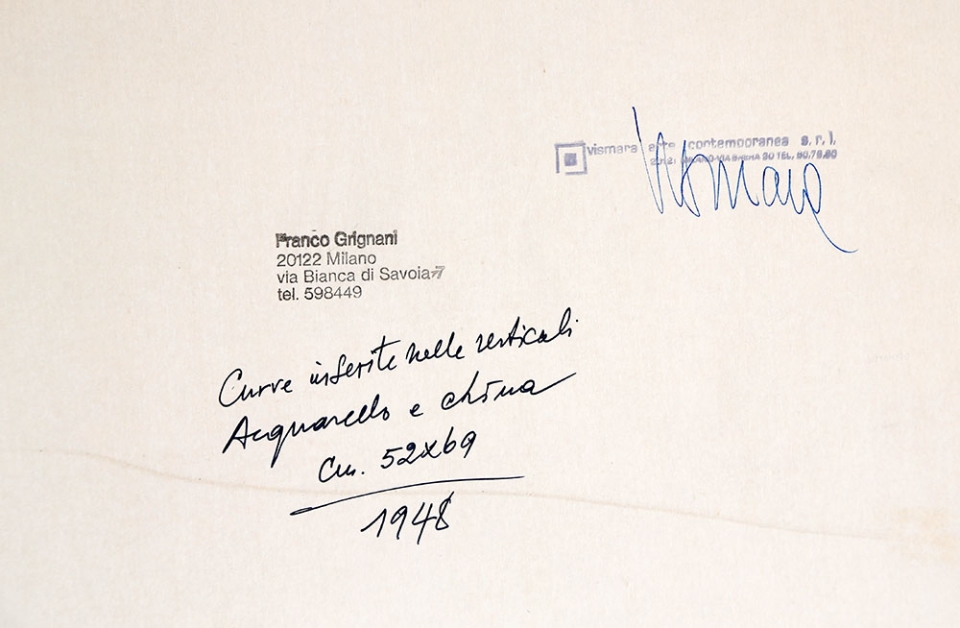 vismara arte contemporanea s.r.l.
MILANO-VIA BRERA 30 TEL.
Vismara
Franco Grignani
20122 Milano
via Bianca di Savoia 7
tel. 598449
Curve inserite nelle verticali
Acquarello e china
Cm. 52x69
1948